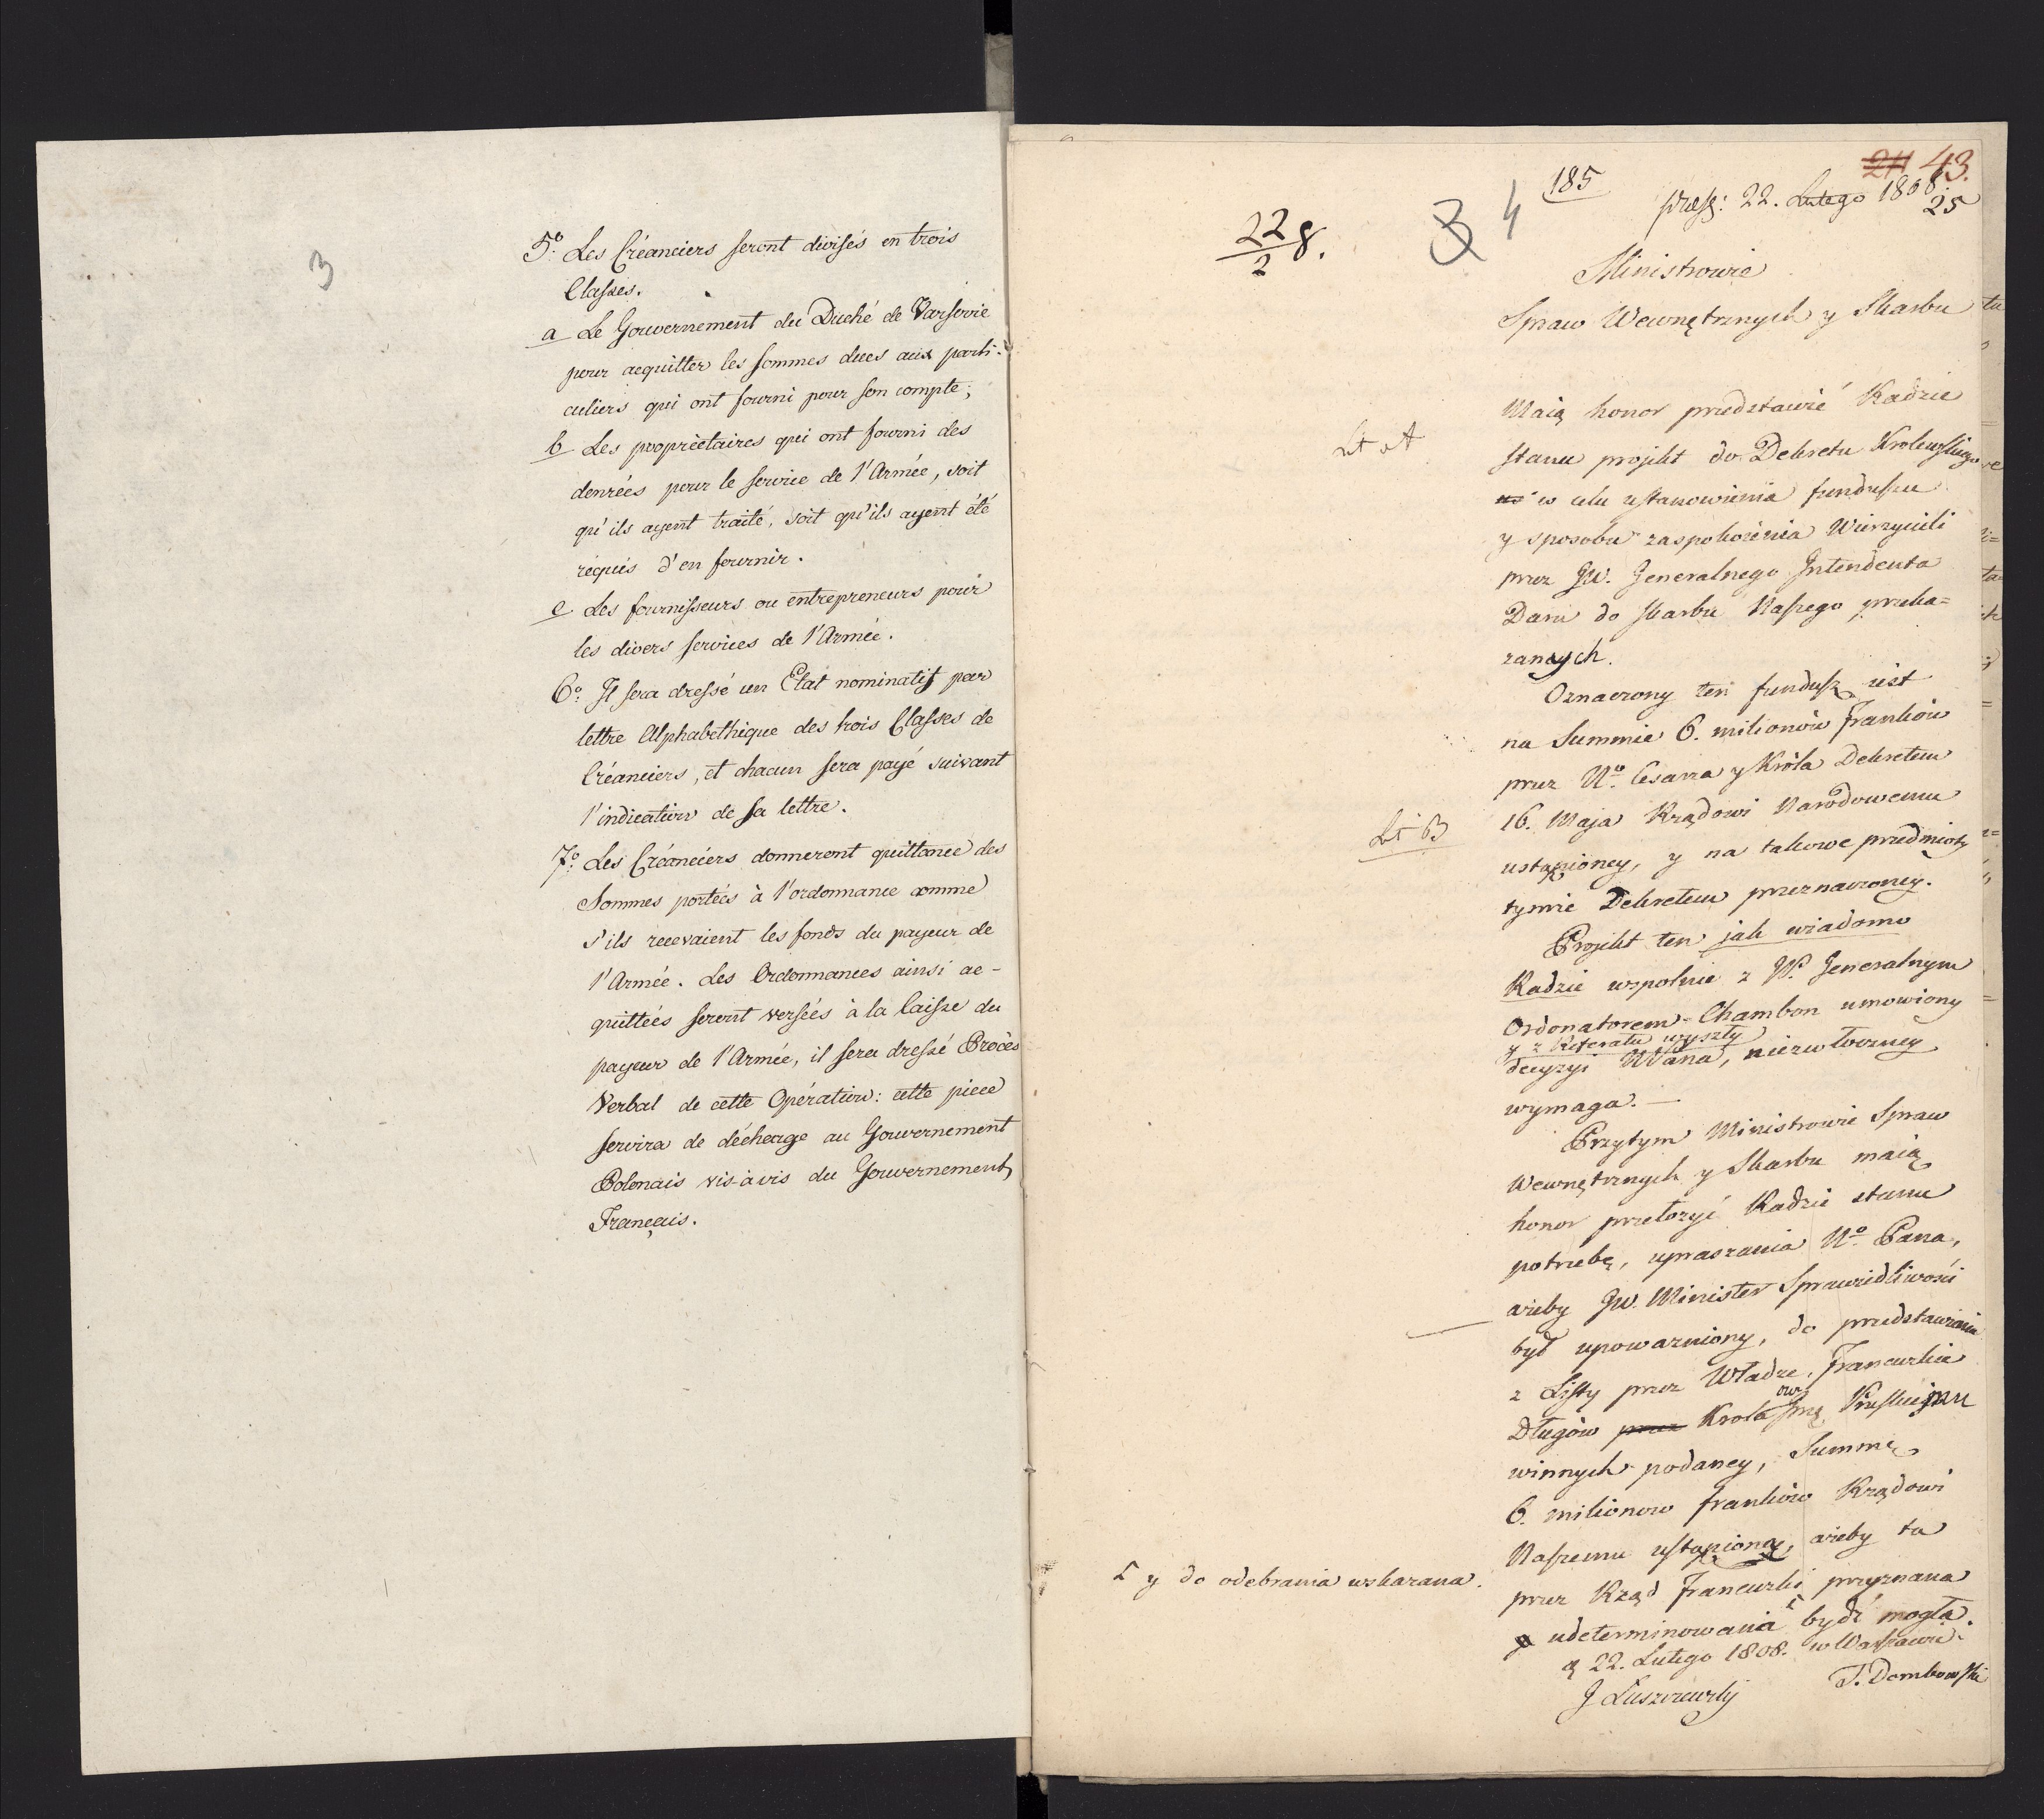 3
5º. Les Créanciers seront divisés en trois
Classes.
a Le Gouvernement du Duché de Varsovie
pour acquitter les sommes dues aux parti-
culiers qui ont fourni pour son compte;
b Les propriètaires qui ont fourni des
denrées pour le service de l'Armée, soit
qu'ils ayent traité, soit qu'ils ayent été
réquis d'en fournir.
c Les fournisseurs ou entrepreneurs pour
les divers services de l'Armée.
6º. Il sera dressé un Etat nominatif par
lettre Alphabethique des trois Classes de
Créanciers, et chacun sera payé suivant
l'indication de sa lettre.
7º. Les Créanciers donneront quittance des
Sommes portées à l'ordonnance comme
s'ils recevaient les fonds du payeur de
l'Armée. Les Ordonnances ainsi ac-
quittées seront versées à la Caisse du
payeur de l'Armée, il sera dressé Procès
Verbal de cette Opération: cette piece
servira de décharge au Gouvernement
Polonais vis-à-vis du Gouvernement
Français.
43.
185
press: 22. Lutego 1808.
25
22/2 8.
3 4
Ministrowie
Spraw Wewnętrznych y Skarbu
Maią honor przedstawić Radzie
Lit A
Stanu projekt do Dekretu Krolewskiego
w celu ustanowienia funduszu
y sposobu zaspokoienia Wierzycieli
przez JW. Generalnego Intendenta
Daru do skarbu Naszego przeka=
zanych.
Oznaczony ten fundusz iest
na Summie 6. milionów Franków
przez Nº. Cesarza y Króla Dekretem
Lit B
16. Maja Rządowi Narodowemu
ustąpioney, y na takowe przedmioty
tymże Dekretem przeznaczoney.
Projekt ten jak wiadomo
Radzie wspolnie z JW. Generalnym
Ordonatorem Chambon umowiony
y z Referatu wyszły
decyzyi Wana, niezwłoczney
wymaga. —
Przytym Ministrowie Spraw
Wewnętrznych y Skarbu maią
honor przełozyć Radzie stanu
potrzebę, upraszania Nº. Pana,
ażeby JW. Minister Sprawiedliwości
był upowazniony, do przedstawienia
z Listy przez Władze Francuzkie
Długów przez Krolowi Pruskiemu
winnych podaney, Summę
6. milionow franków Rządowi
Naszemu ustąpioną, ażeby ta
przez Rząd Francuzki przyznana
udeterminowana bydź mogła.
y do odebrania wskazana.
d 22. Lutego 1808. w Warszawie.
J Łuszczewski
J. Dembowski